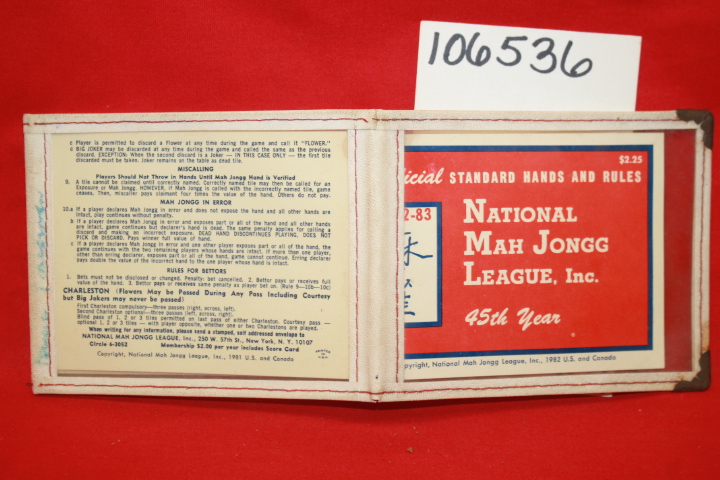 106536
c Player is permitted to discard a flower at any time during the game and call it "FLOWER."
c BIG JOKER may be discarded at any time during the game and called the same as the previous
discard. EXCEPTION: When the second discard is a Joker — IN THIS CASE ONLY — the first tile
discarded must be taken. Joker remains on the table as dead tile.
MISCALLING
Players Should Not Throw in Hands Until Mah Jongg Hand is Verified
9. A tile cannot be claimed until correctly named. Correctly named tile may then be called for an
Exposure or Mah Jongg. HOWEVER, if Mah Jongg is called with the incorrectly named tile, game
ceases. Then, miscaller pays claimant four times the value of the hand. Others do not pay.
MAH JONGG IN ERROR
10.a If a player declares Mah Jongg in error and does not expose the hand and all other hands are
intact, play continues without penalty.
b If a player declares Mah Jongg in error and exposes part or all of the hand and all other hands
are intact, game continues but declarer's hand is dead. The same penalty applies for calling a
discard and making an incorrect exposure. DEAD HAND DISCONTINUES PLAYING, DOES NOT
PICK OR DISCARD. Pays winner full value of hand.
c If a player declares Mah Jongg in error and one other player exposes part or all of the hand, the
game continues with the two remaining players whose hands are intact. If more than one player,
other than erring declarer, exposes part or all of the hand, game cannot continue. Erring declarer
pays double the value of the incorrect hand to the one player whose hand is intact.
RULES FOR BETTORS
1. Bets must not be disclosed or changed. Penalty: bet cancelled. 2. Bettor pays or receives full
value of the hand. 3. Bettor pays or receives same penalty as player bet on. (Rule 9—10b—10c)
CHARLESTON (Flowers May be Passed During Any Pass Including Courtesy
but Big Jokers may never be passed)
First Charleston compulsory—three passes (right, across, left).
Second Charleston optional—three passes (left, across, right).
Blind pass of 1, 2 or 3 tiles permitted on last pass of either Charleston. Courtesy pass —
optional 1, 2 or 3 tiles — with player opposite, whether one or two Charlestons are played.
When writing for any information, please send a stamped, self addressed envelope to
NATIONAL MAH JONGG LEAGUE, INC., 250 W. 57th St., New York, N. Y. 10107
Circle 6-3052 Membership $2.00 per year includes Score Card
Copyright, National Mah Jongg League, Inc., 1981 U.S. and Canada
$2.25
icial STANDARD HANDS AND RULES
2-83
NATIONAL
MAH JONGG
LEAGUE, Inc.
45th Year
pyright, National Mah Jongg League, Inc., 1982 U.S. and Canada